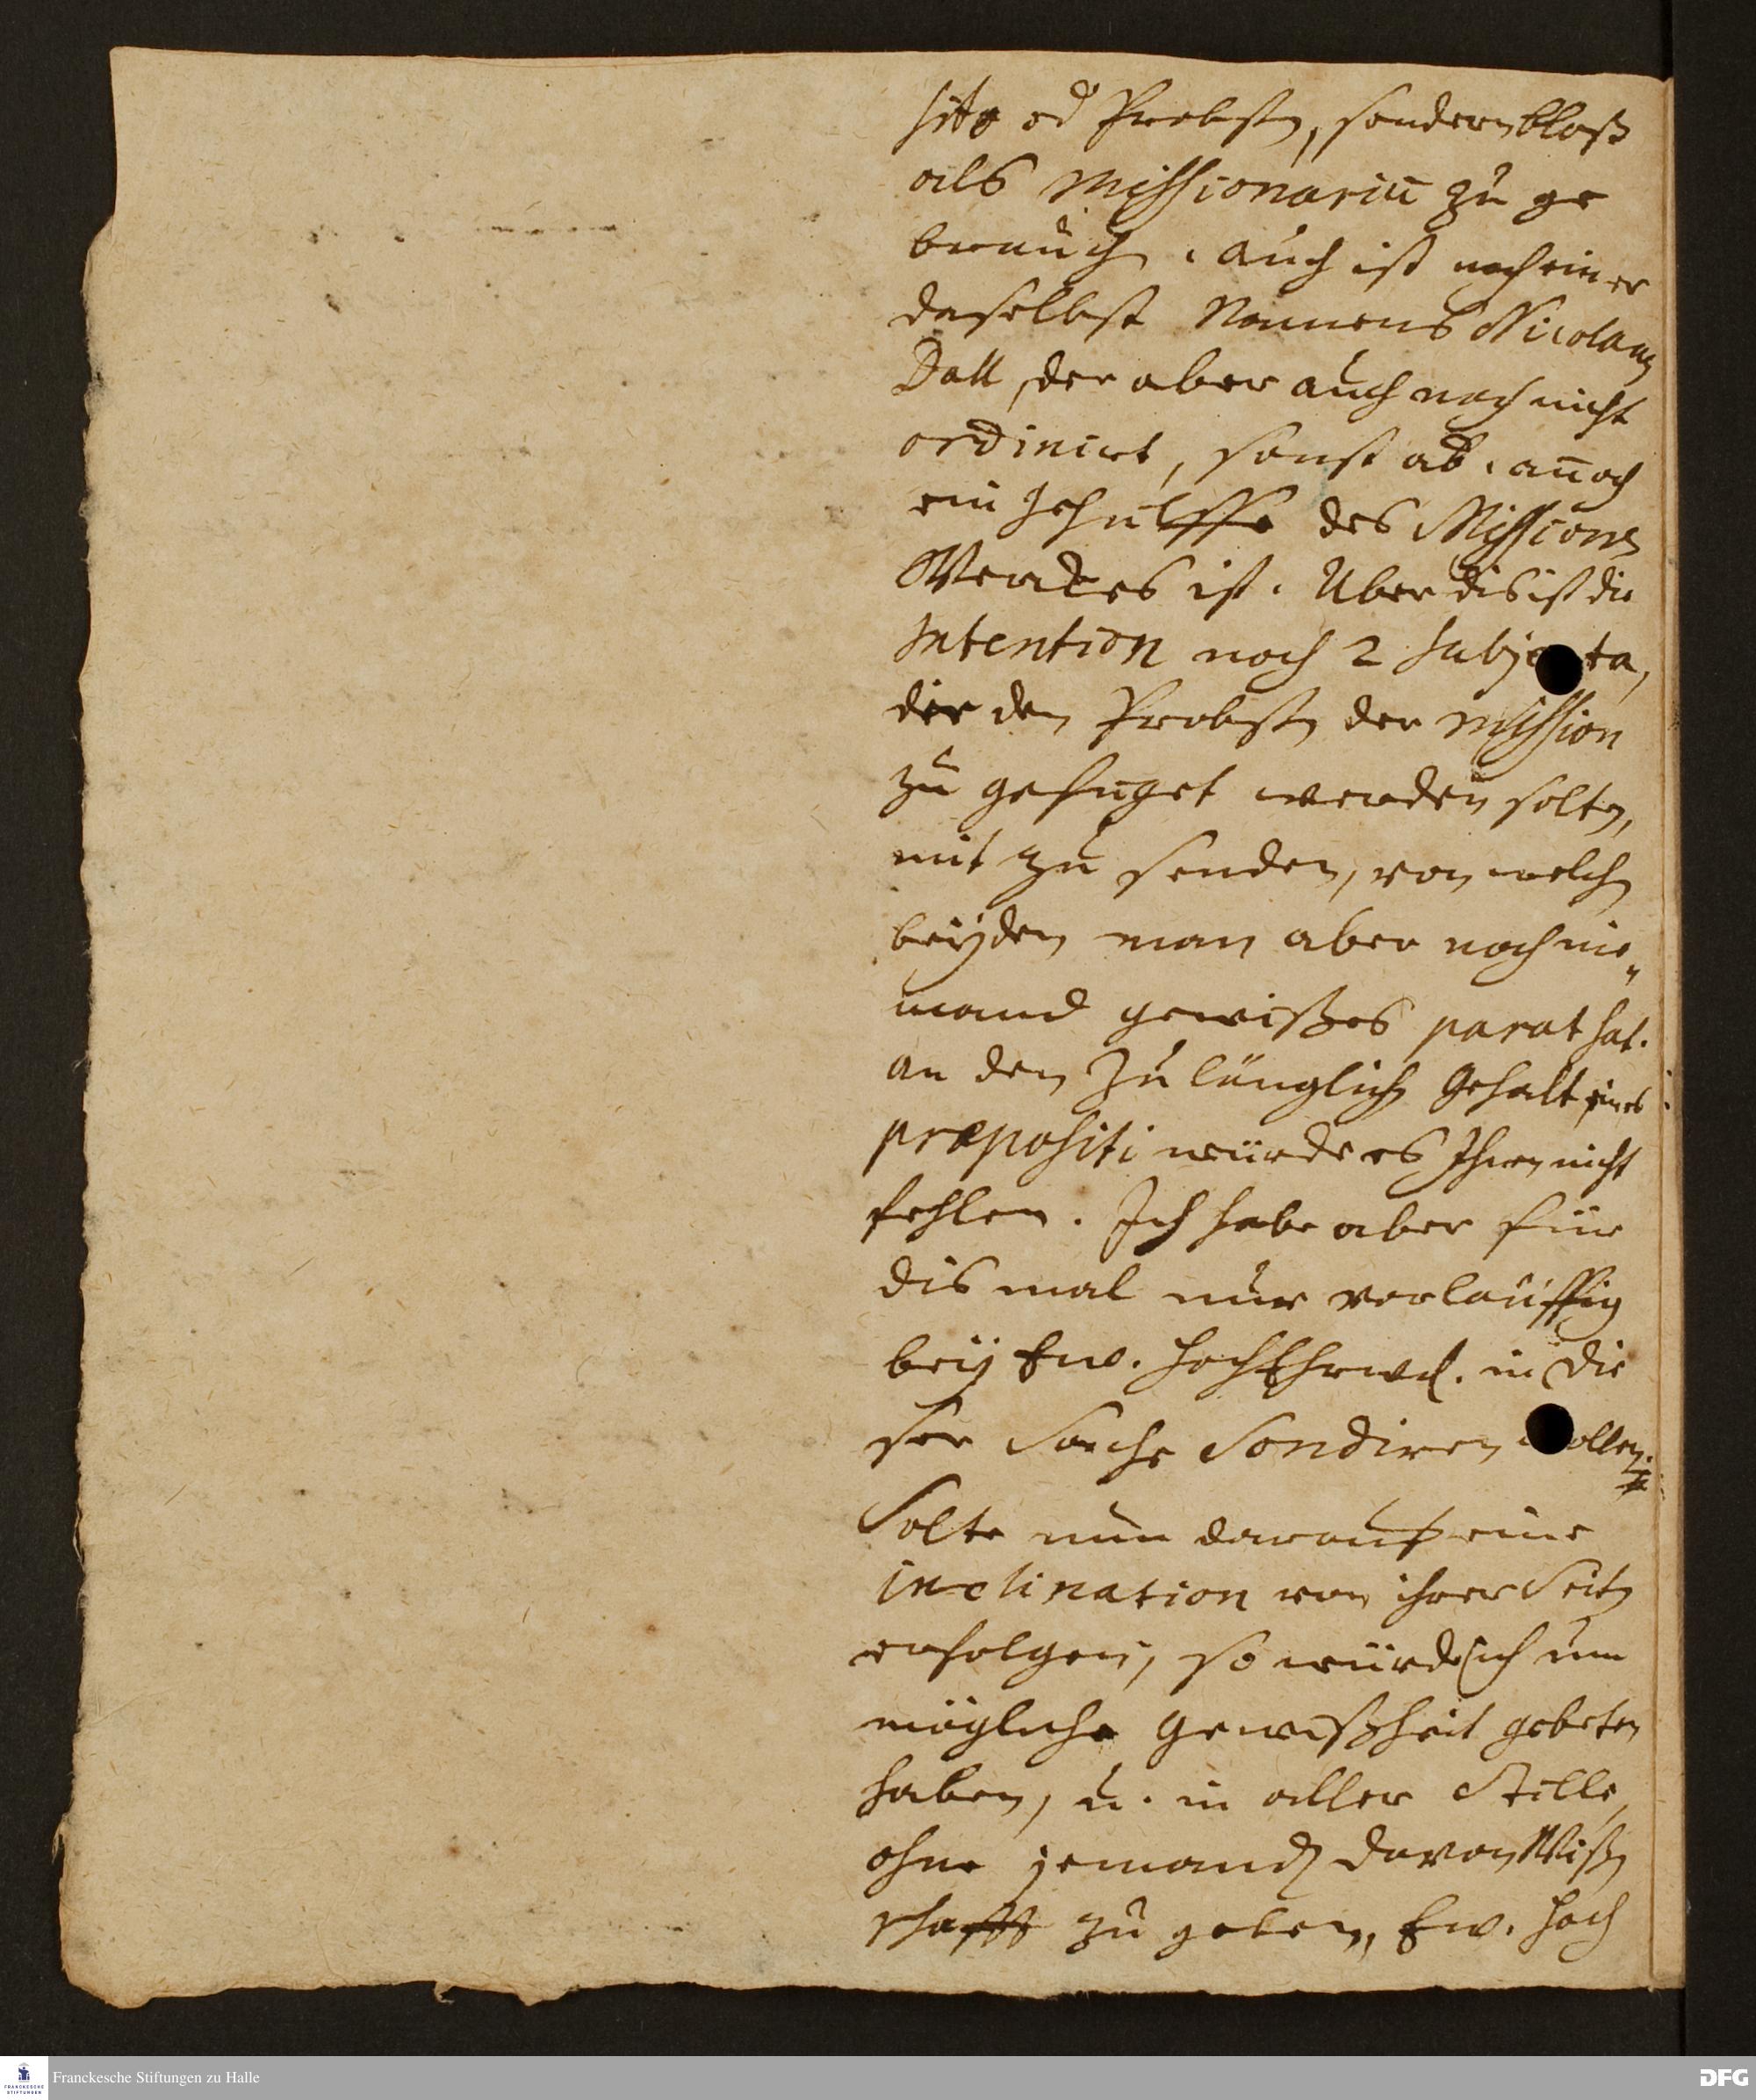 sito od Probsten, sondern bloß
als Missionariū zu ge
brauch. Auch ist noch einer
daselbst Namens Nicolaus
Dall, der aber auch noch nicht
ordinirt, sonst ab. añoch
ein Gehülffe des Missions
Werckes ist. Uber dis ist die
Intention noch 2 Subjecta,
die den Probsten der Mission
zu gefüget werden solten,
mit zu senden, von welchen
beyden man aber noch nie„
mand gewißes parat hat.
An den Zulänglichen Gehalt eines
præpositi würde es Ihnen nicht
fehlen. Ich habe aber für
dis mal nur vorläuffig
bey Ew. HochEhrwd. in die
ser Sache Sondiren wollen.
Solte nun darauf eine
inclination von ihrer Seiten
erfolgen, so würde ich um
mögliche Gewißheit gebeten
haben, u. in aller Stille,
ohne jemanden davon Wißen
schafft zu geben, Ew. Hoch
Franckesche Stiftungen zu Halle
DFG